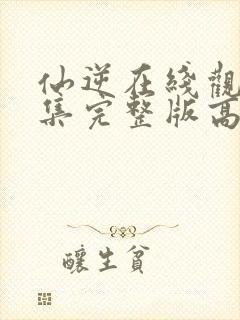 仙逆在綫觀
集完整版高
釀生貧